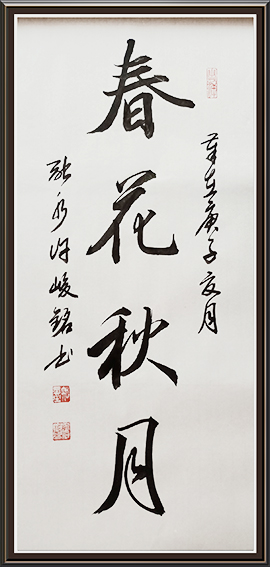 春花秋月
岁在庚子夏月
融水许峻铭书